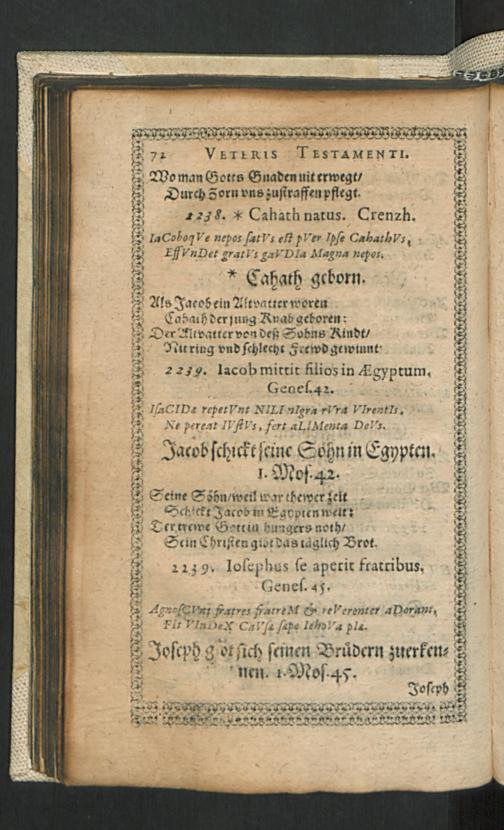 72 VETERIS TESTAMENTI.
Wo man Gotts Gnaden nit erwegt/
Durch Zorn vns zustraffen pflegt.
2238. * Cahath natus. Crenzh.
IaCoboqVe nepos satVs est pVer Ipse CahathVs,
EffVnDet gratVs gaVDIa Magna nepos.
* Cahath geborn.
Als Jacob ein Altvatter woren
Cahath der jung Knab geboren:
Der Altvatter von deß Sohns Kindt/
Nit ring vnd schlecht Frewd gewinnt
2239. Iacob mittit filios in Ægyptum,
Genes. 42.
IsaCIDæ repetVnt NILI nIgra rVra VIrentIs,
Ne pereat IVstVs, fert aLIMenta DeVs.
Jacob schickt seine Söhn in Egypten.
1. Mos. 42.
Seine Söhn/ weil war thewer zeit
Schickt Jacob in Egypten weit:
Der trewe Gott in hungers noth/
Sein Christen gibt das täglich Brot.
2239. Iosephus se aperit fratribus,
Genes. 45.
AgnoscVnt fratres fratreM & reVerenter aDorant,
FIt VInDeX CaVsæ sæpe IehoVa pIæ.
Joseph gibt sich seinen Brüdern zuerken-
nen. 1. Mos. 45.
Joseph